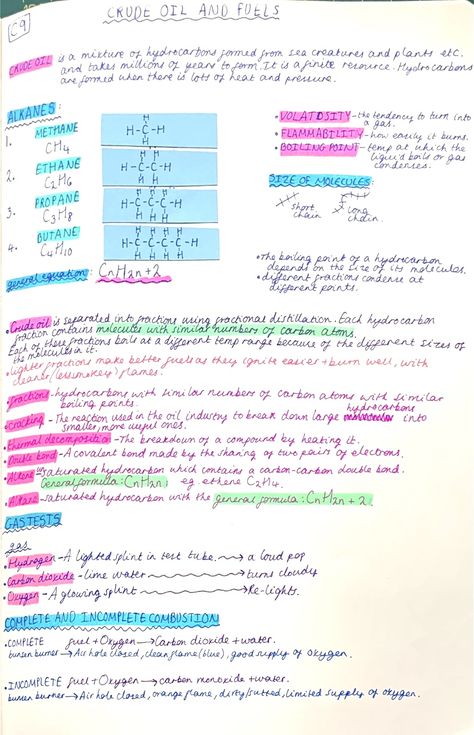 C9
CRUDE OIL AND FUELS
CRUDE OIL is a mixture of hydrocarbons formed from sea creatures and plants etc.
and takes millions of years to form. It is a finite resource. Hydrocarbons
are formed when there is lots of heat and pressure.
ALKANES:
1. METHANE
CH4
2. ETHANE
C2H6
3. PROPANE
C3H8
4. BUTANE
C4H10
general equation: CnH2n+2
• VOLATOSITY - the tendency to turn into
a gas.
• FLAMMABILITY - how easily it burns.
• BOILING POINT - temp at which the
liquid boils or gas
condenses.
SIZE OF MOLECULES:
short
chain
long
chain.
• The boiling point of a hydrocarbon
depends on the size of its molecules.
• different fractions condense at
different points.
• Crude oil is separated into fractions using fractional distillation. Each hydrocarbon
fraction contains molecules with similar numbers of carbon atoms.
Each of these fractions boils at a different temp range because of the different sizes of
the molecules in it.
• lighter fractions make better fuels as they ignite easier + burn well, with
cleaner (less smokey) flames.
• fractions - hydrocarbons with similar numbers of carbon atoms with similar
boiling points.
• Cracking - The reaction used in the oil industry to break down large hydrocarbons into
smaller, more useful ones.
• thermal decomposition - The breakdown of a compound by heating it.
• Double bond - A covalent bond made by the sharing of two pairs of electrons.
• Alkene - unsaturated hydrocarbon which contains a carbon-carbon double bond.
General formula: CnH2n eg. ethene C2H4.
• Alkane - saturated hydrocarbon with the general formula: CnH2n+2.
GAS TESTS
gas
• Hydrogen - A lighted splint in test tube. → a loud pop
• Carbon dioxide - lime water → turns cloudy
• Oxygen - A glowing splint → Re-lights.
COMPLETE AND INCOMPLETE COMBUSTION
• COMPLETE fuel + Oxygen → Carbon dioxide + water.
bunsen burner → Air hole closed, clean flame (blue), good supply of oxygen.
• INCOMPLETE fuel + Oxygen → carbon monoxide + water.
bunsen burner → Air hole closed, orange flame, dirty/sutted, limited supply of oxygen.